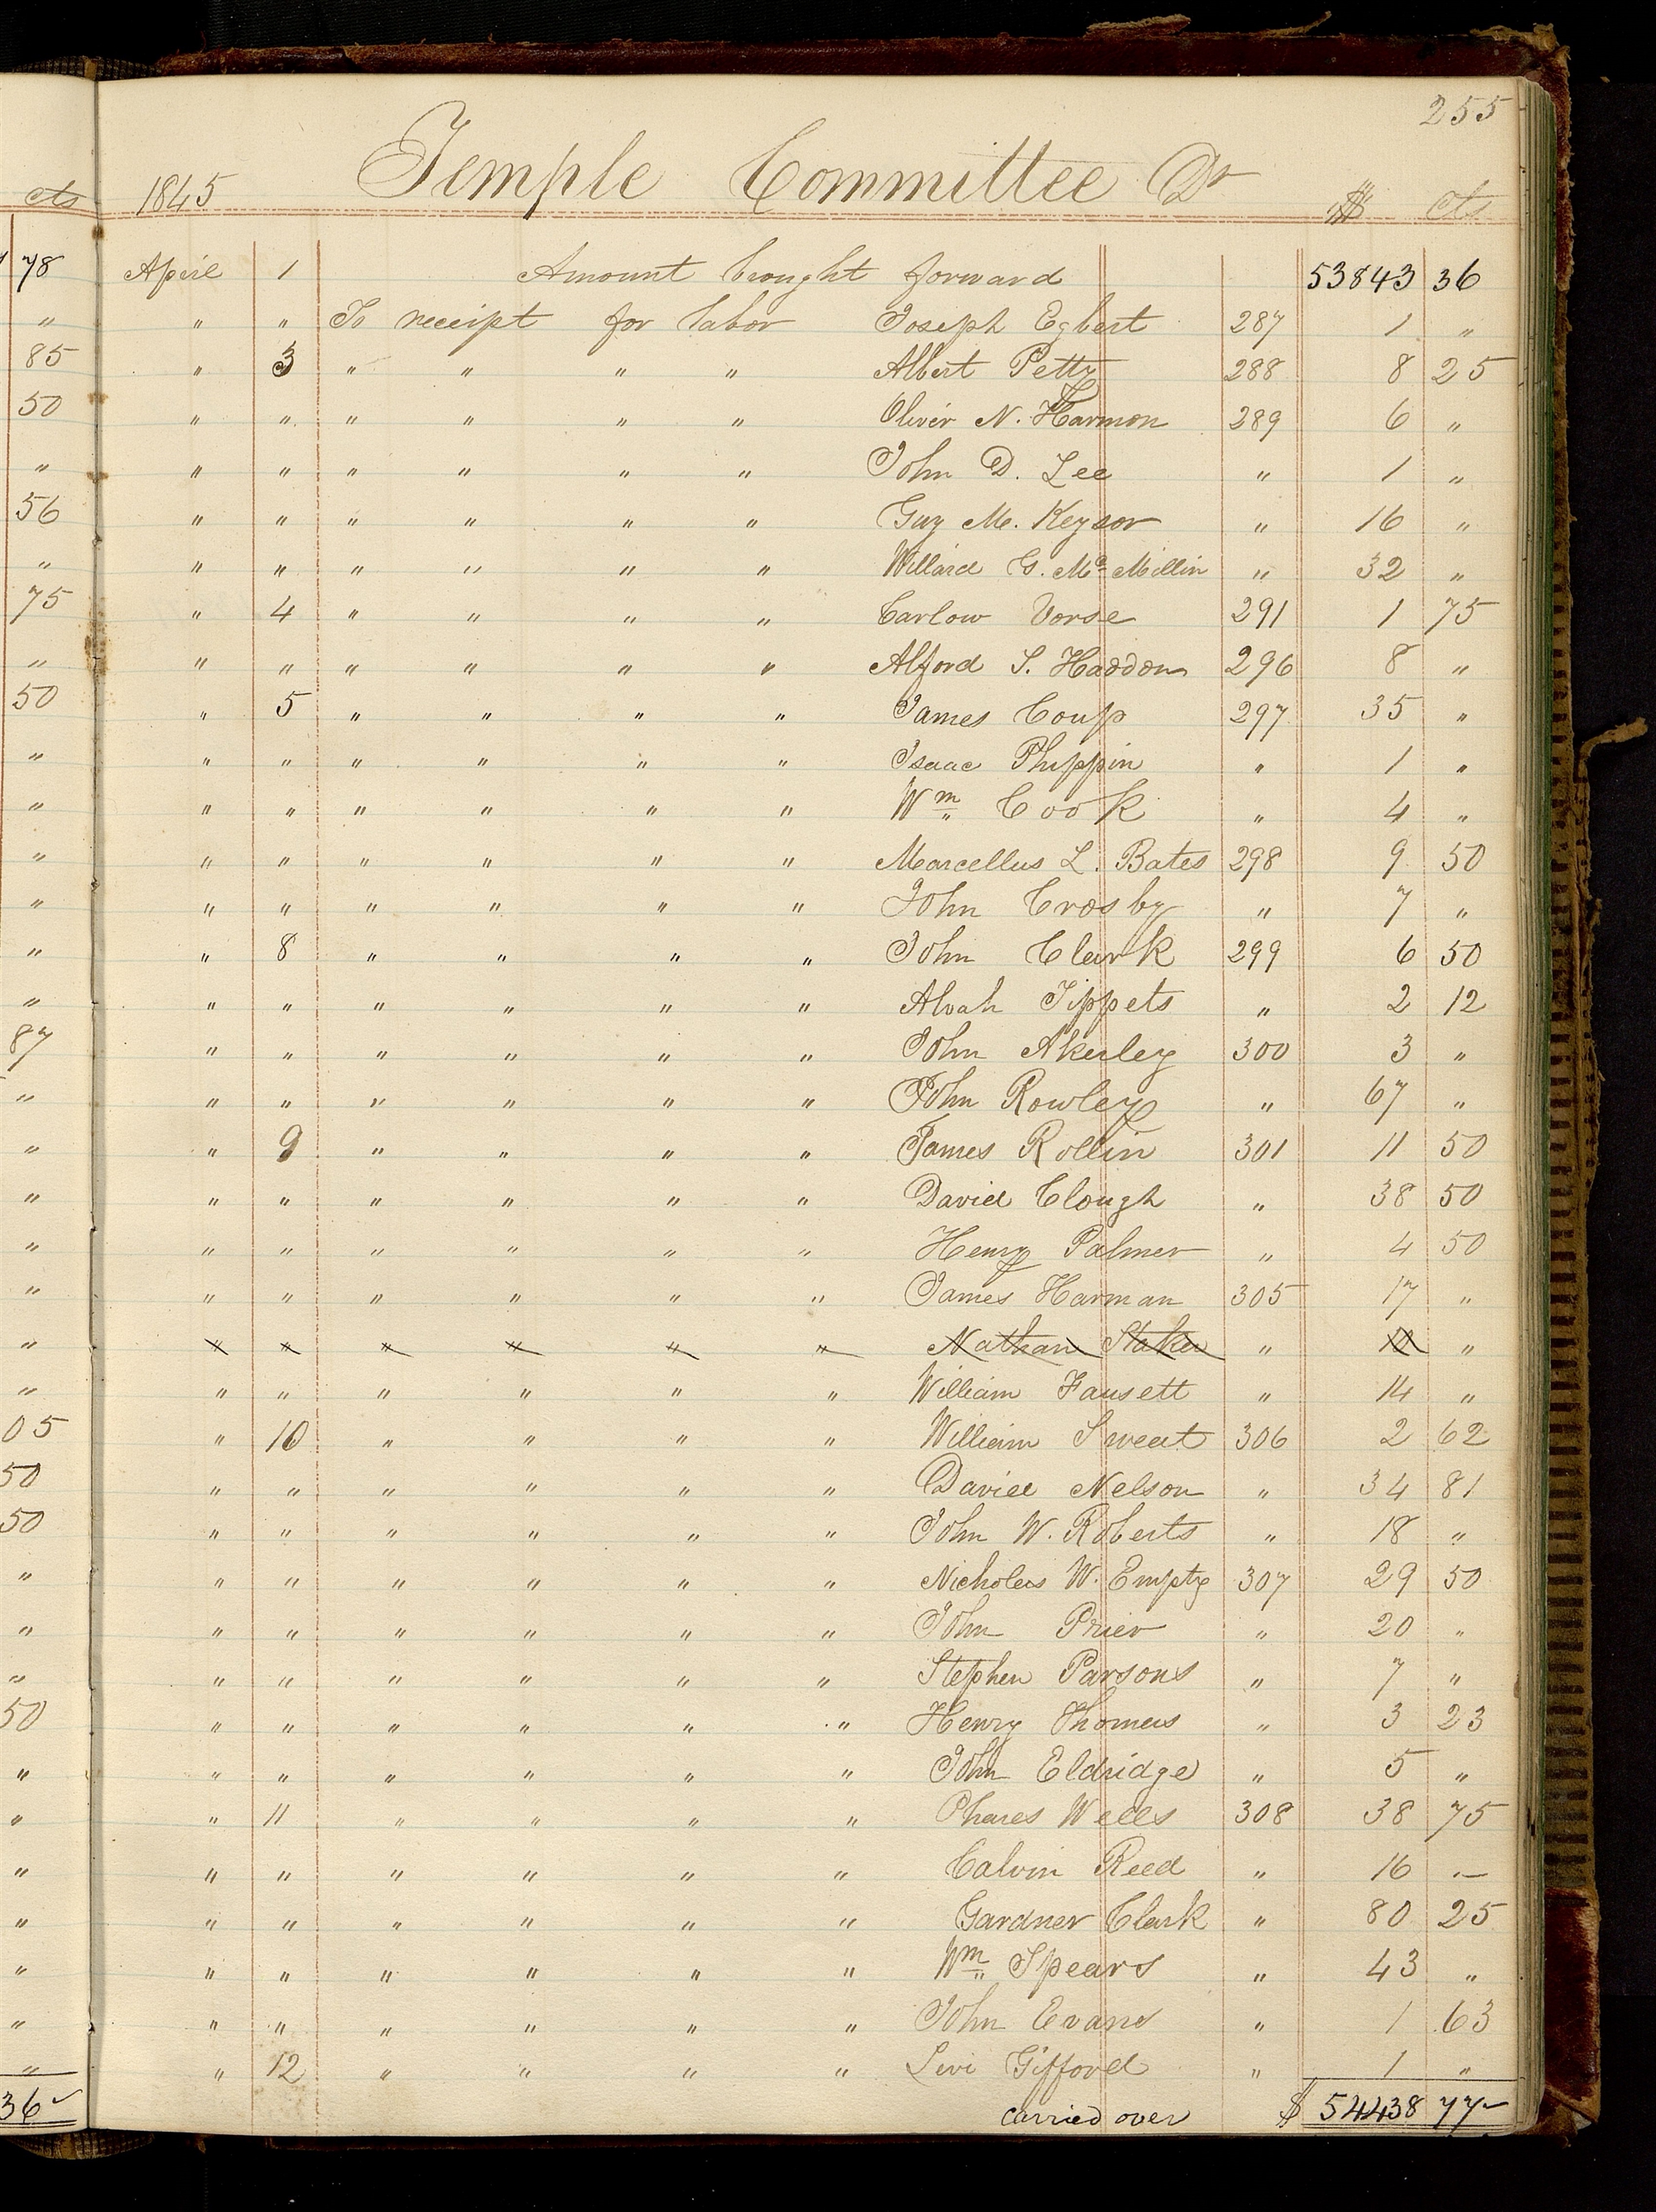 255
1845 Temple Committee Dr $ cts
April 1 Amount brought forward 53843 36
" " To receipt for labor Joseph Egbert 287 1 "
" 3 " " " " Albert Petty 288 8 25
" " " " " " Oliver N. Harmon 289 6 "
" " " " " " John D. Lee " 1 "
" " " " " " Guy M. Keysor " 16 "
" " " " " " Willard G. Mc Millin " 32 "
" 4 " " " " Carlow Vorse 291 1 75
" " " " " " Alford S. Haddon 296 8 "
" 5 " " " " James Coup 297 35 "
" " " " " " Isaac Phippin " 1 "
" " " " " " Wm Cook " 4 "
" " " " " " Marcellus L. Bates 298 9 50
" " " " " " John Crosby " 7 "
" 8 " " " " John Clark 299 6 50
" " " " " " Alvah Tippets " 2 12
" " " " " " John Akerley 300 3 "
" " " " " " John Rowley " 67 "
" 9 " " " " James Rollin 301 11 50
" " " " " " David Clough " 38 50
" " " " " " Henry Palmer " 4 50
" " " " " " James Harman 305 17 "
" " " " " " Nathan Staker " 10 "
" " " " " " William Fausett " 14 "
" 10 " " " " William Sweat 306 2 62
" " " " " " David Nelson " 34 81
" " " " " " John W. Roberts " 18 "
" " " " " " Nicholas W. Empty 307 29 50
" " " " " " John Prier " 20 "
" " " " " " Stephen Parsons " 7 "
" " " " " " Henry Thomas " 3 23
" " " " " " John Eldridge " 5 "
" 11 " " " " Phares Wells 308 38 75
" " " " " " Calvin Reed " 16 —
" " " " " " Gardner Clark " 80 25
" " " " " " Wm Spears " 43 "
" " " " " " John Evans " 1 63
" 12 " " " " Levi Gifford " 1 "
carried over $ 54438 77
cts
78
"
85
50
"
56
"
75
"
50
"
"
"
"
"
"
87
"
"
"
"
"
"
"
05
50
50
"
"
"
50
"
"
"
"
"
"
"
36